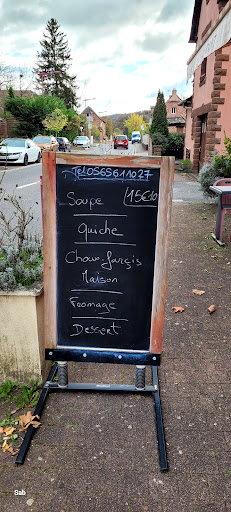 Tel 0565611027
15€10
Soupe
Quiche
Chou-farçis
Maison
Fromage
Dessert
Sab